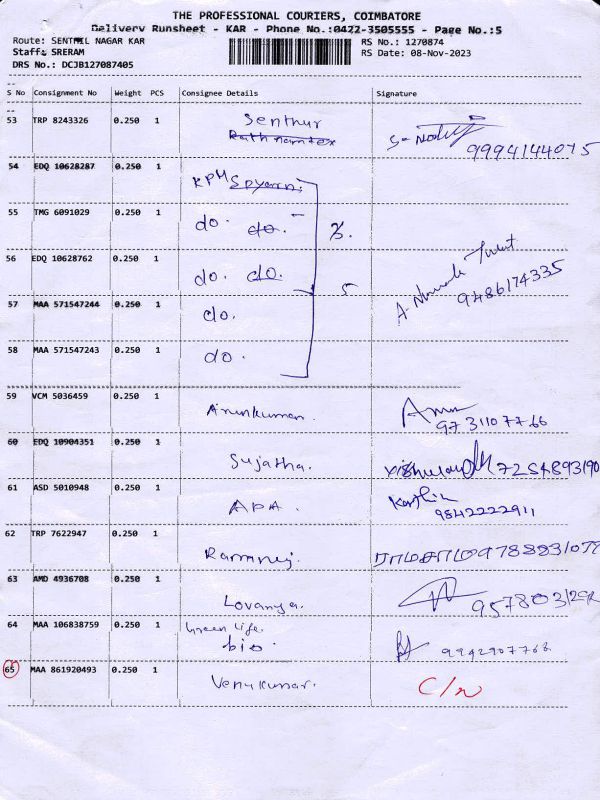 THE PROFESSIONAL COURIERS, COIMBATORE
Delivery Runsheet - KAR - Phone No.:0422-3505555 - Page No.:5
Route: SENTHIL NAGAR KAR RS No.: 1270874
Staff: SRERAM RS Date: 08-Nov-2023
DRS No.: DCJB127087405
S No Consignment No Weight PCS Consignee Details Signature
53 TRP 8243326 0.250 1 Senthur
9994144075
54 EDQ 10628287 0.250 1 KPM
55 TMG 6091029 0.250 1 do. do.
56 EDQ 10628762 0.250 1 do. do. 5
9486174335
57 MAA 571547244 0.250 1 do.
58 MAA 571547243 0.250 1 do.
59 VCM 5036459 0.250 1 Arunkumar.
9731107766
60 EDQ 10904351 0.250 1 Sujatha. 7254893190
61 ASD 5010948 0.250 1 APA. Karthik
9842222911
62 TRP 7622947 0.250 1 Ramraj.
63 AMD 4936708 0.250 1 Lovanya.
64 MAA 106838759 0.250 1 Green Life.
bio. 9942907768
65 MAA 861920493 0.250 1 Venukumar. C/n